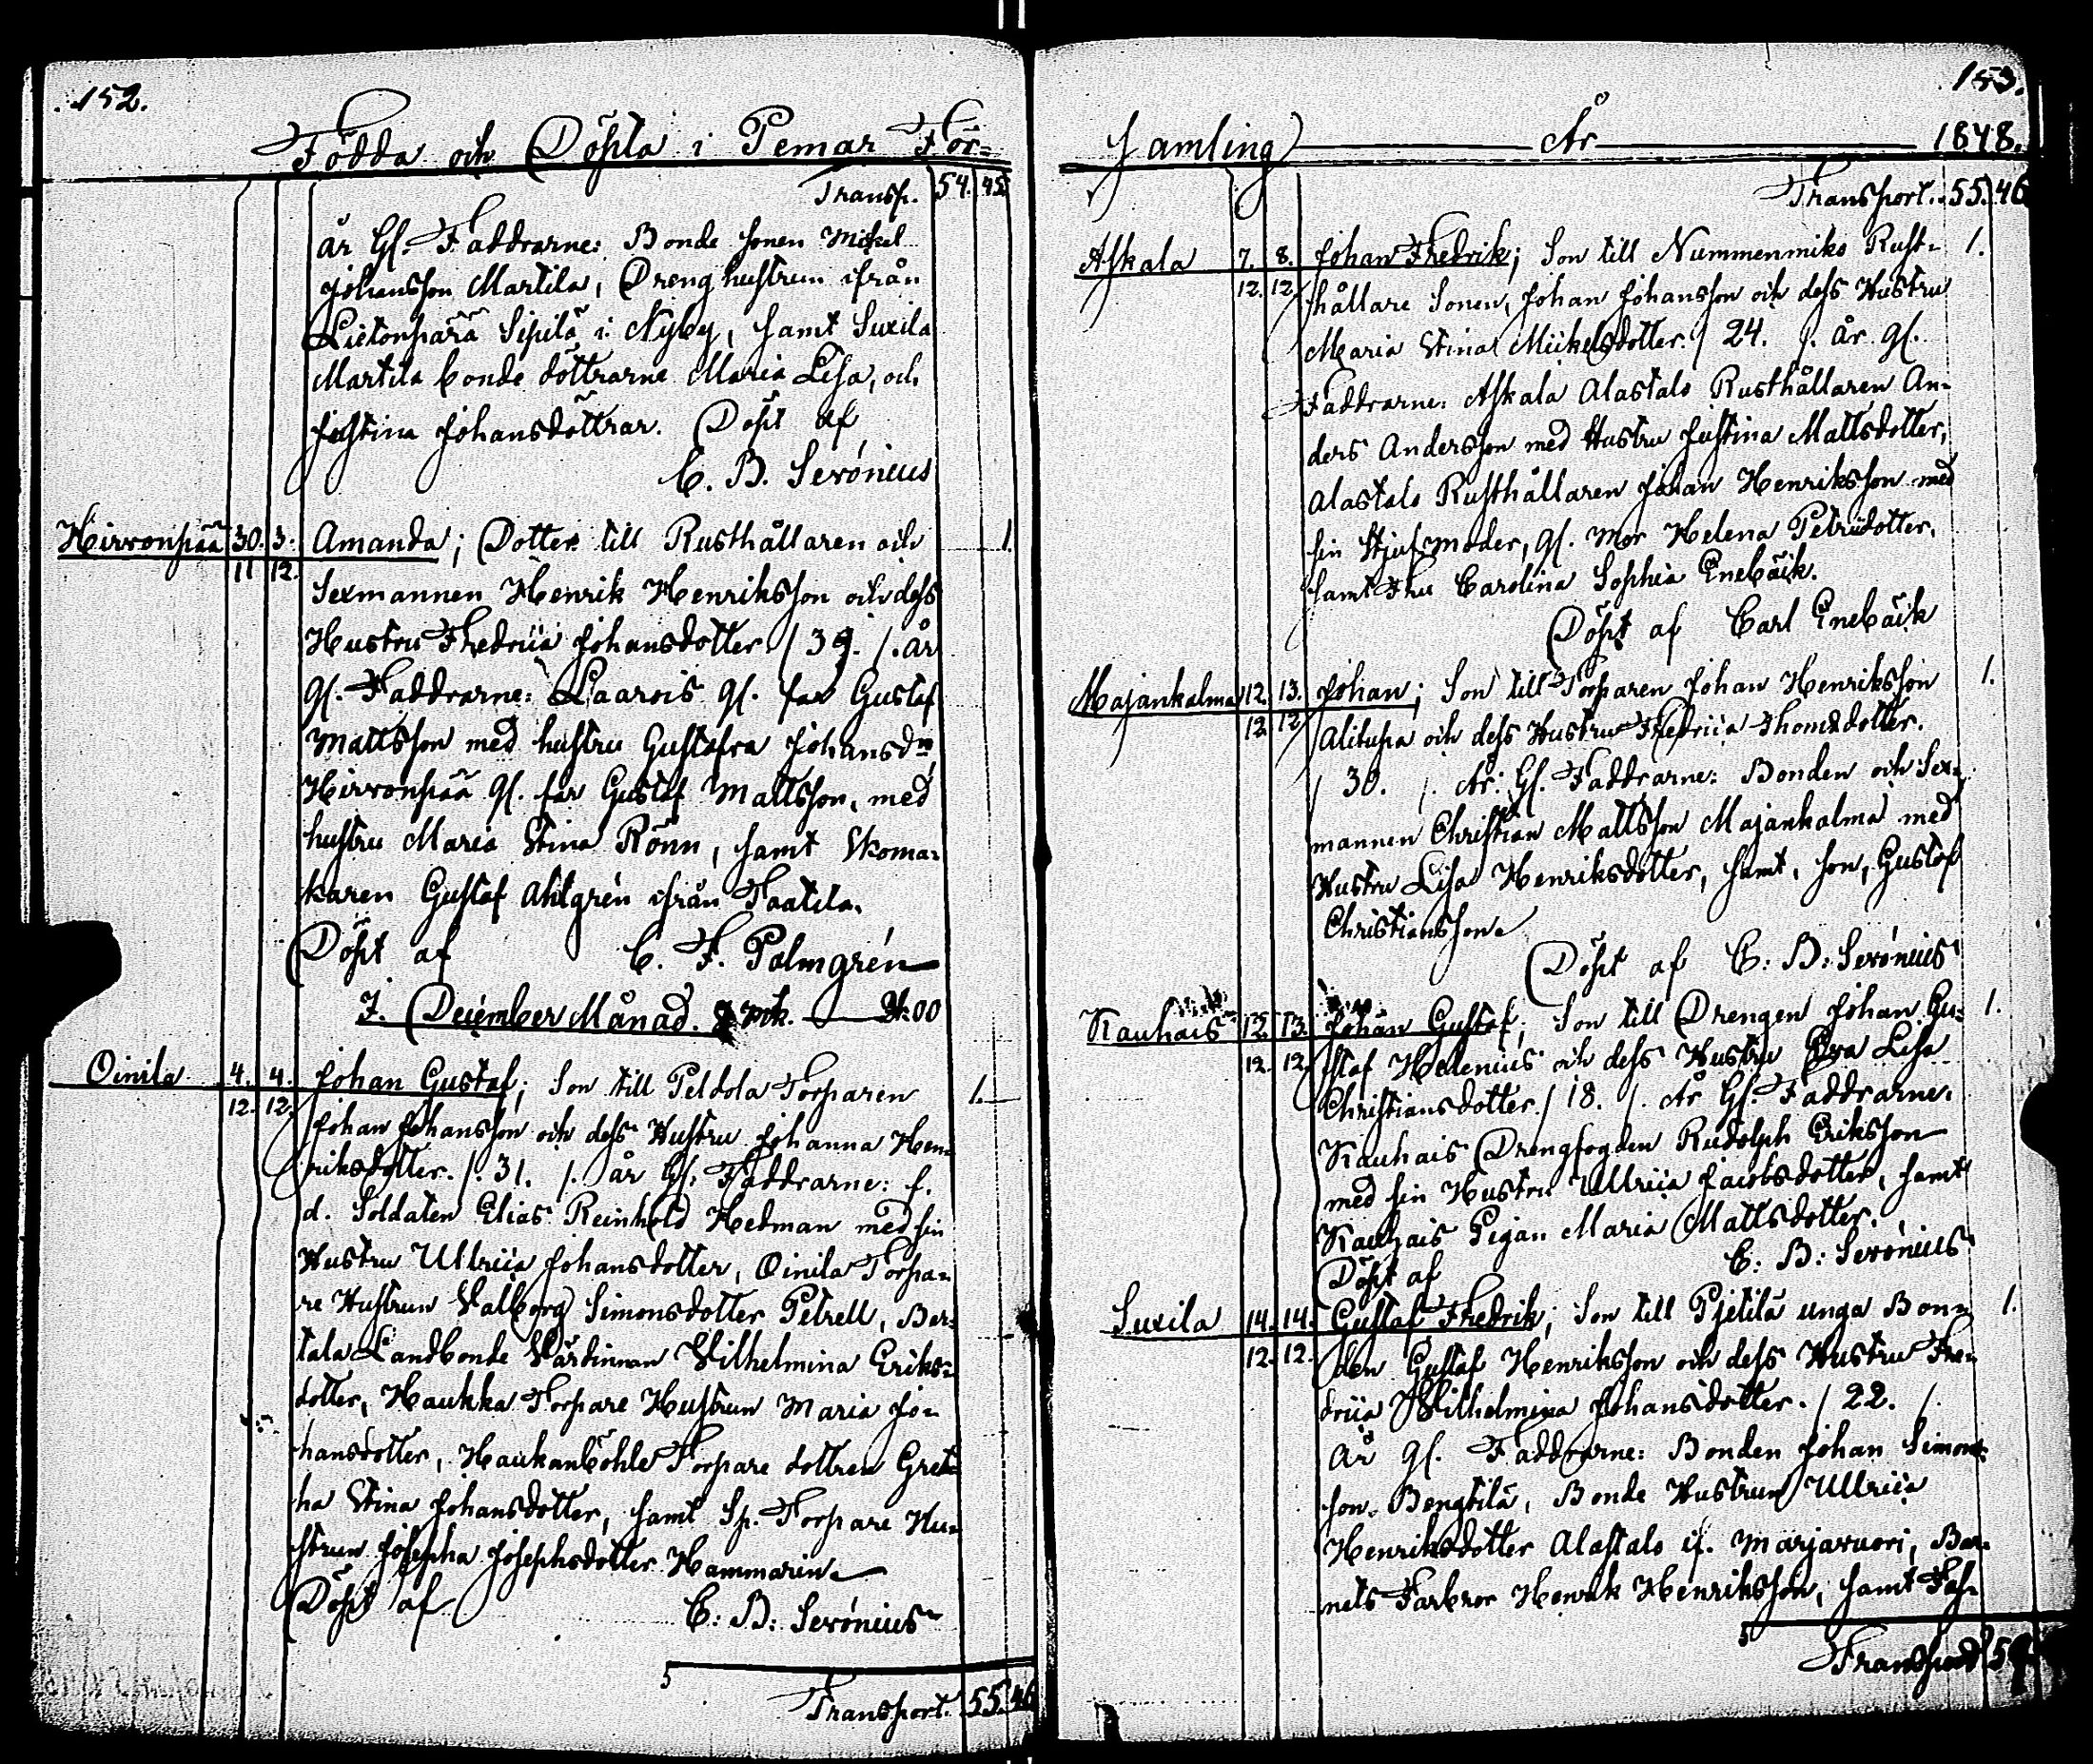 152.
Födda och Döpta i Pemar För=
Transp. 54. 45.
år Gl. Faddrarne: Bonde sonen Mickel
Johansson Martila, Drenghustrun ifrån
Lietonpärä Sipilä i Nyby, samt Suxila
Martila bonde döttrarne Maria Lisa, och
Justina Johansdöttrar. Döpt af
C. B. Serónius
Hirvonpää 30. 3. Amanda; Dotter till Rusthållaren och 1.
11 12. Sexmannen Henrik Henriksson och dess
Hustru Fredrica Johansdotter. / 39. /. år
gl. Faddrarne: Laarois gl. far Gustaf
Mattsson med hustru Gustafva Johansdr,
Hirvonpää gl. far Gustaf Mattsson, med
hustru Maria Stina Rönn, samt Skoma=
karen Gustaf Ahlgrén ifrån Taatila.
Döpt af C. F. Palmgrén
I. December Månad.
Oinila 4. 4. Johan Gustaf; Son till Peldola Torparen 1.
12. 12. Johan Johansson och dess Hustru Johanna Hen=
riksdotter. /. 31. /. år Gl. Faddrarne: f.
d. Soldaten Elias Reinhold Hedman med sin
Hustru Ullrica Johansdotter, Oinila Torpa=
re Hustrun Valborg Simonsdotter Petrell, Ber=
tala Landbonde Värdinnan Wilhelmina Eriks=
dotter, Haukka Torpare Hustrun Maria Jo=
hansdotter, Haukanböhle Torpare dottren Gret=
ha Stina Johansdotter, samt Sp. Torpare Hu=
strun Josepha Josephsdotter Hammarin.
Döpt af C: B: Serónius
5
Transport. 55. 46
153.
samling År 1848.
Transport. 55. 46
Askala 7. 8. Johan Fredrik; Son till Nummenmiko Rust= 1.
12. 12. hållare Sonen, Johan Johansson och dess Hustru
Maria Stina Mickelsdotter. / 24. /. år gl.
Faddrarne: Askala Alastalo Rusthållaren An=
ders Andersson med Hustru Justina Mattsdotter,
Alastalo Rusthållaren Johan Henriksson med
sin Stjufmoder, gl. Mor Helena Petridotter,
samt Fru Carolina Sophia Enebäck.
Döpt af Carl Enebäck
Majankalma 12. 13. Johan; Son till Torparen Johan Henriksson 1.
12 12 Alitupa och dess Hustru Fredrica Thomsdotter.
/ 30. /. År: Gl. Faddrarne: Bonden och Sex=
mannen Christian Mattsson Majankalma med
Hustru Lisa Henriksdotter, samt, son, Gustaf
Christiansson.
Döpt af C: B: Serónius
Kauhais 12. 13. Johan Gustaf; Son till Drengen Johan Gu= 1.
12. 12. staf Helenius och dess Hustru Eva Lisa
Christiansdotter. / 18. /. År Gl. Faddrarne.
Kauhais Drengfogden Rudolph Eriksson
med sin Hustru Ullrica Jacobsdotter, samt
Kauhais Pigan Maria Mattsdotter.
Döpt af C: B: Serónius
Suxila 14. 14. Gustaf Fredrik; Son till Pjetilä unga Bon= 1.
12. 12. den Gustaf Henriksson och dess Hustru Fre=
drica Wilhelmina Johansdotter. / 22. /.
År gl. Faddrarne: Bonden Johan Simons=
son. Bengtilä, Bonde Hustrun Ullrica
Henriksdotter Alastalo if. Marjavuori, Bar=
nets Farbror Henrik Henriksson, samt Fas=
5
Transport